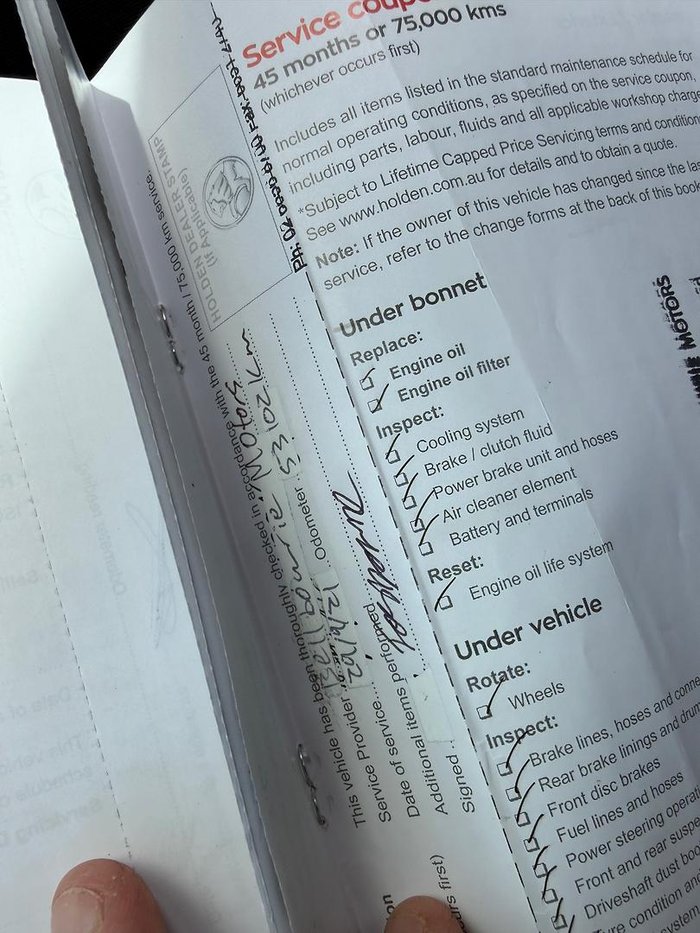 Service coupon
45 months or 75,000 kms
(whichever occurs first)
Includes all items listed in the standard maintenance schedule for
normal operating conditions, as specified on the service coupon
including parts, labour, fluids and all applicable workshop charge
*Subject to Lifetime Capped Price Servicing terms and condition
See www.holden.com.au for details and to obtain a quote.
Note: If the owner of this vehicle has changed since the las
service, refer to the change forms at the back of this book
Under bonnet
Replace:
Engine oil
Engine oil filter
Inspect:
Cooling system
Brake / clutch fluid
Power brake unit and hoses
Air cleaner element
Battery and terminals
Reset:
Engine oil life system
Under vehicle
Rotate:
Wheels
Inspect:
Brake lines, hoses and conne
Rear brake linings and drum
Front disc brakes
Fuel lines and hoses
Power steering operati
Front and rear suspe
Driveshaft dust boo
Tyre condition and
system
MOTORS
Ph: 02
HOLDEN DEALER STAMP
(If Applicable)
This vehicle has been thoroughly checked in accordance with the 45 month / 75,000 km service.
Service Provider Motors
Date of service Odometer 53102 km
Additional items performed
Signed
ours first)
on